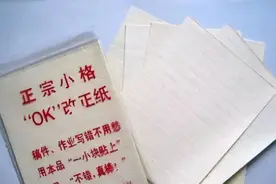 正宗小格
“OK”改正纸
稿件、作业写错不用愁
用本品“一小块贴上”
“不错,真棒!”